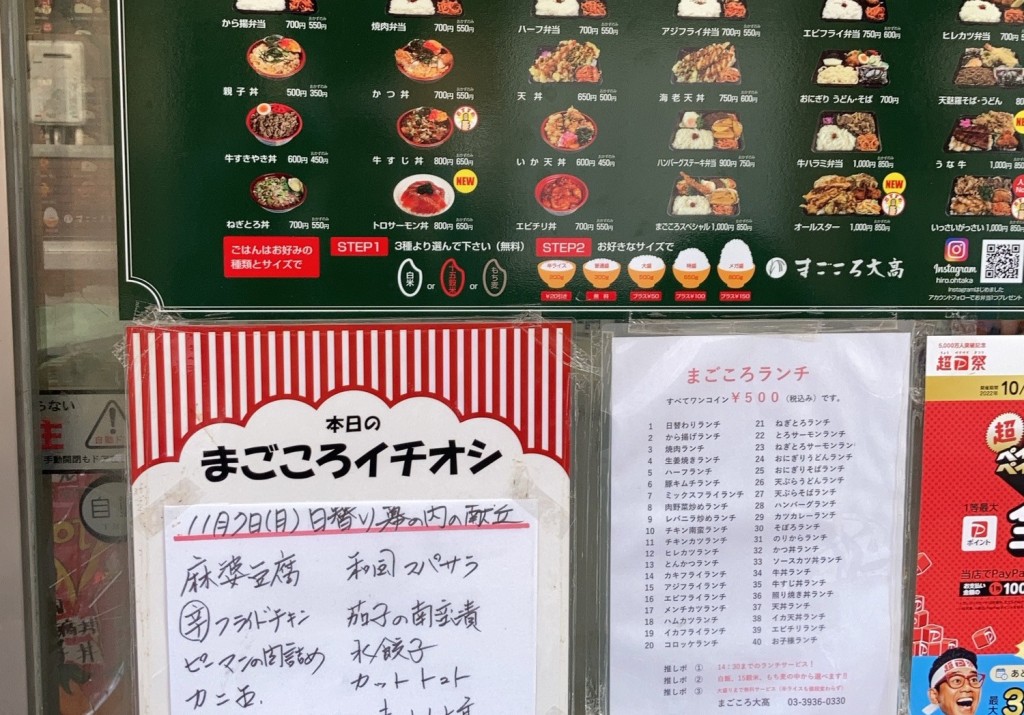 から揚弁当 700円 550円
焼肉弁当 700円 550円
ハーフ弁当 700円 550円
アジフライ弁当 700円 550円
エビフライ弁当 750円 600円
ヒレカツ弁当 700円
親子丼 500円 350円
かつ丼 700円 550円
天丼 650円 500円
海老天丼 750円 600円
おにぎり うどん・そば 700円
天麩羅そば・うどん 800円
牛すきやき丼 600円 450円
牛すじ丼 800円 650円
いか天丼 600円 450円
ハンバーグステーキ弁当 900円 750円
牛ハラミ弁当 1,000円 850円
うな牛 1,000円 850円
NEW
NEW
ねぎとろ丼 700円 550円
トロサーモン丼 800円 650円
エビチリ丼 700円 550円
まごころスペシャル 1,000円 850円
オールスター 1,000円 850円
いっさいがっさい 1,000円 850円
ごはんはお好みの
種類とサイズで
STEP1 3種より選んで下さい(無料)
白米 or 十五穀米 or もち麦
STEP2 お好きなサイズで
半ライス 普通盛 大盛 特盛 メガ盛
¥20引き 無料 プラス¥50 プラス¥100 プラス¥150
まごころ大高
Instagram
hiro.ohtaka
Instagramはじめました
アカウントフォローでお弁当1つプレゼント
らない
自動ド
手動開閉もドア
自
本日の
まごころイチオシ
11月7日(月)日替り幕の内の献立
麻婆豆腐 和風スパサラ
辛フライドチキン 茄子の南蛮漬
ピーマンの肉詰め 水餃子
カニ玉 カットトマト
まごころランチ
すべてワンコイン¥500(税込み)です。
1 日替わりランチ
2 から揚げランチ
3 焼肉ランチ
4 生姜焼きランチ
5 ハーフランチ
6 豚キムチランチ
7 ミックスフライランチ
8 肉野菜炒めランチ
9 レバニラ炒めランチ
10 チキン南蛮ランチ
11 チキンカツランチ
12 ヒレカツランチ
13 とんかつランチ
14 カキフライランチ
15 アジフライランチ
16 エビフライランチ
17 メンチカツランチ
18 ハムカツランチ
19 イカフライランチ
20 コロッケランチ
21 ねぎとろランチ
22 とろサーモンランチ
23 ねぎとろサーモンラン
24 おにぎりうどんランチ
25 おにぎりそばランチ
26 天ぷらうどんランチ
27 天ぷらそばランチ
28 ハンバーグランチ
29 カツカレーランチ
30 そぼろランチ
31 のりからランチ
32 かつ丼ランチ
33 ソースカツ丼ランチ
34 牛丼ランチ
35 牛すじ丼ランチ
36 照り焼き丼ランチ
37 天丼ランチ
38 イカ天丼ランチ
39 エビチリランチ
40 お子様ランチ
推しポ ① 14:30までのランチサービス!
推しポ ② 白飯、15穀米、もち麦の中から選べます!!
推しポ ③ 大盛りまで無料サービス(半ライスも値段変わらず)
まごころ大高 03-3936-0330
5,000万人突破記念
超P祭
開催期間
2022年 10/
超
1等最大
ポイント
当店でPayPa
お支払い
金額の
100
超P祭
あと
最大 3